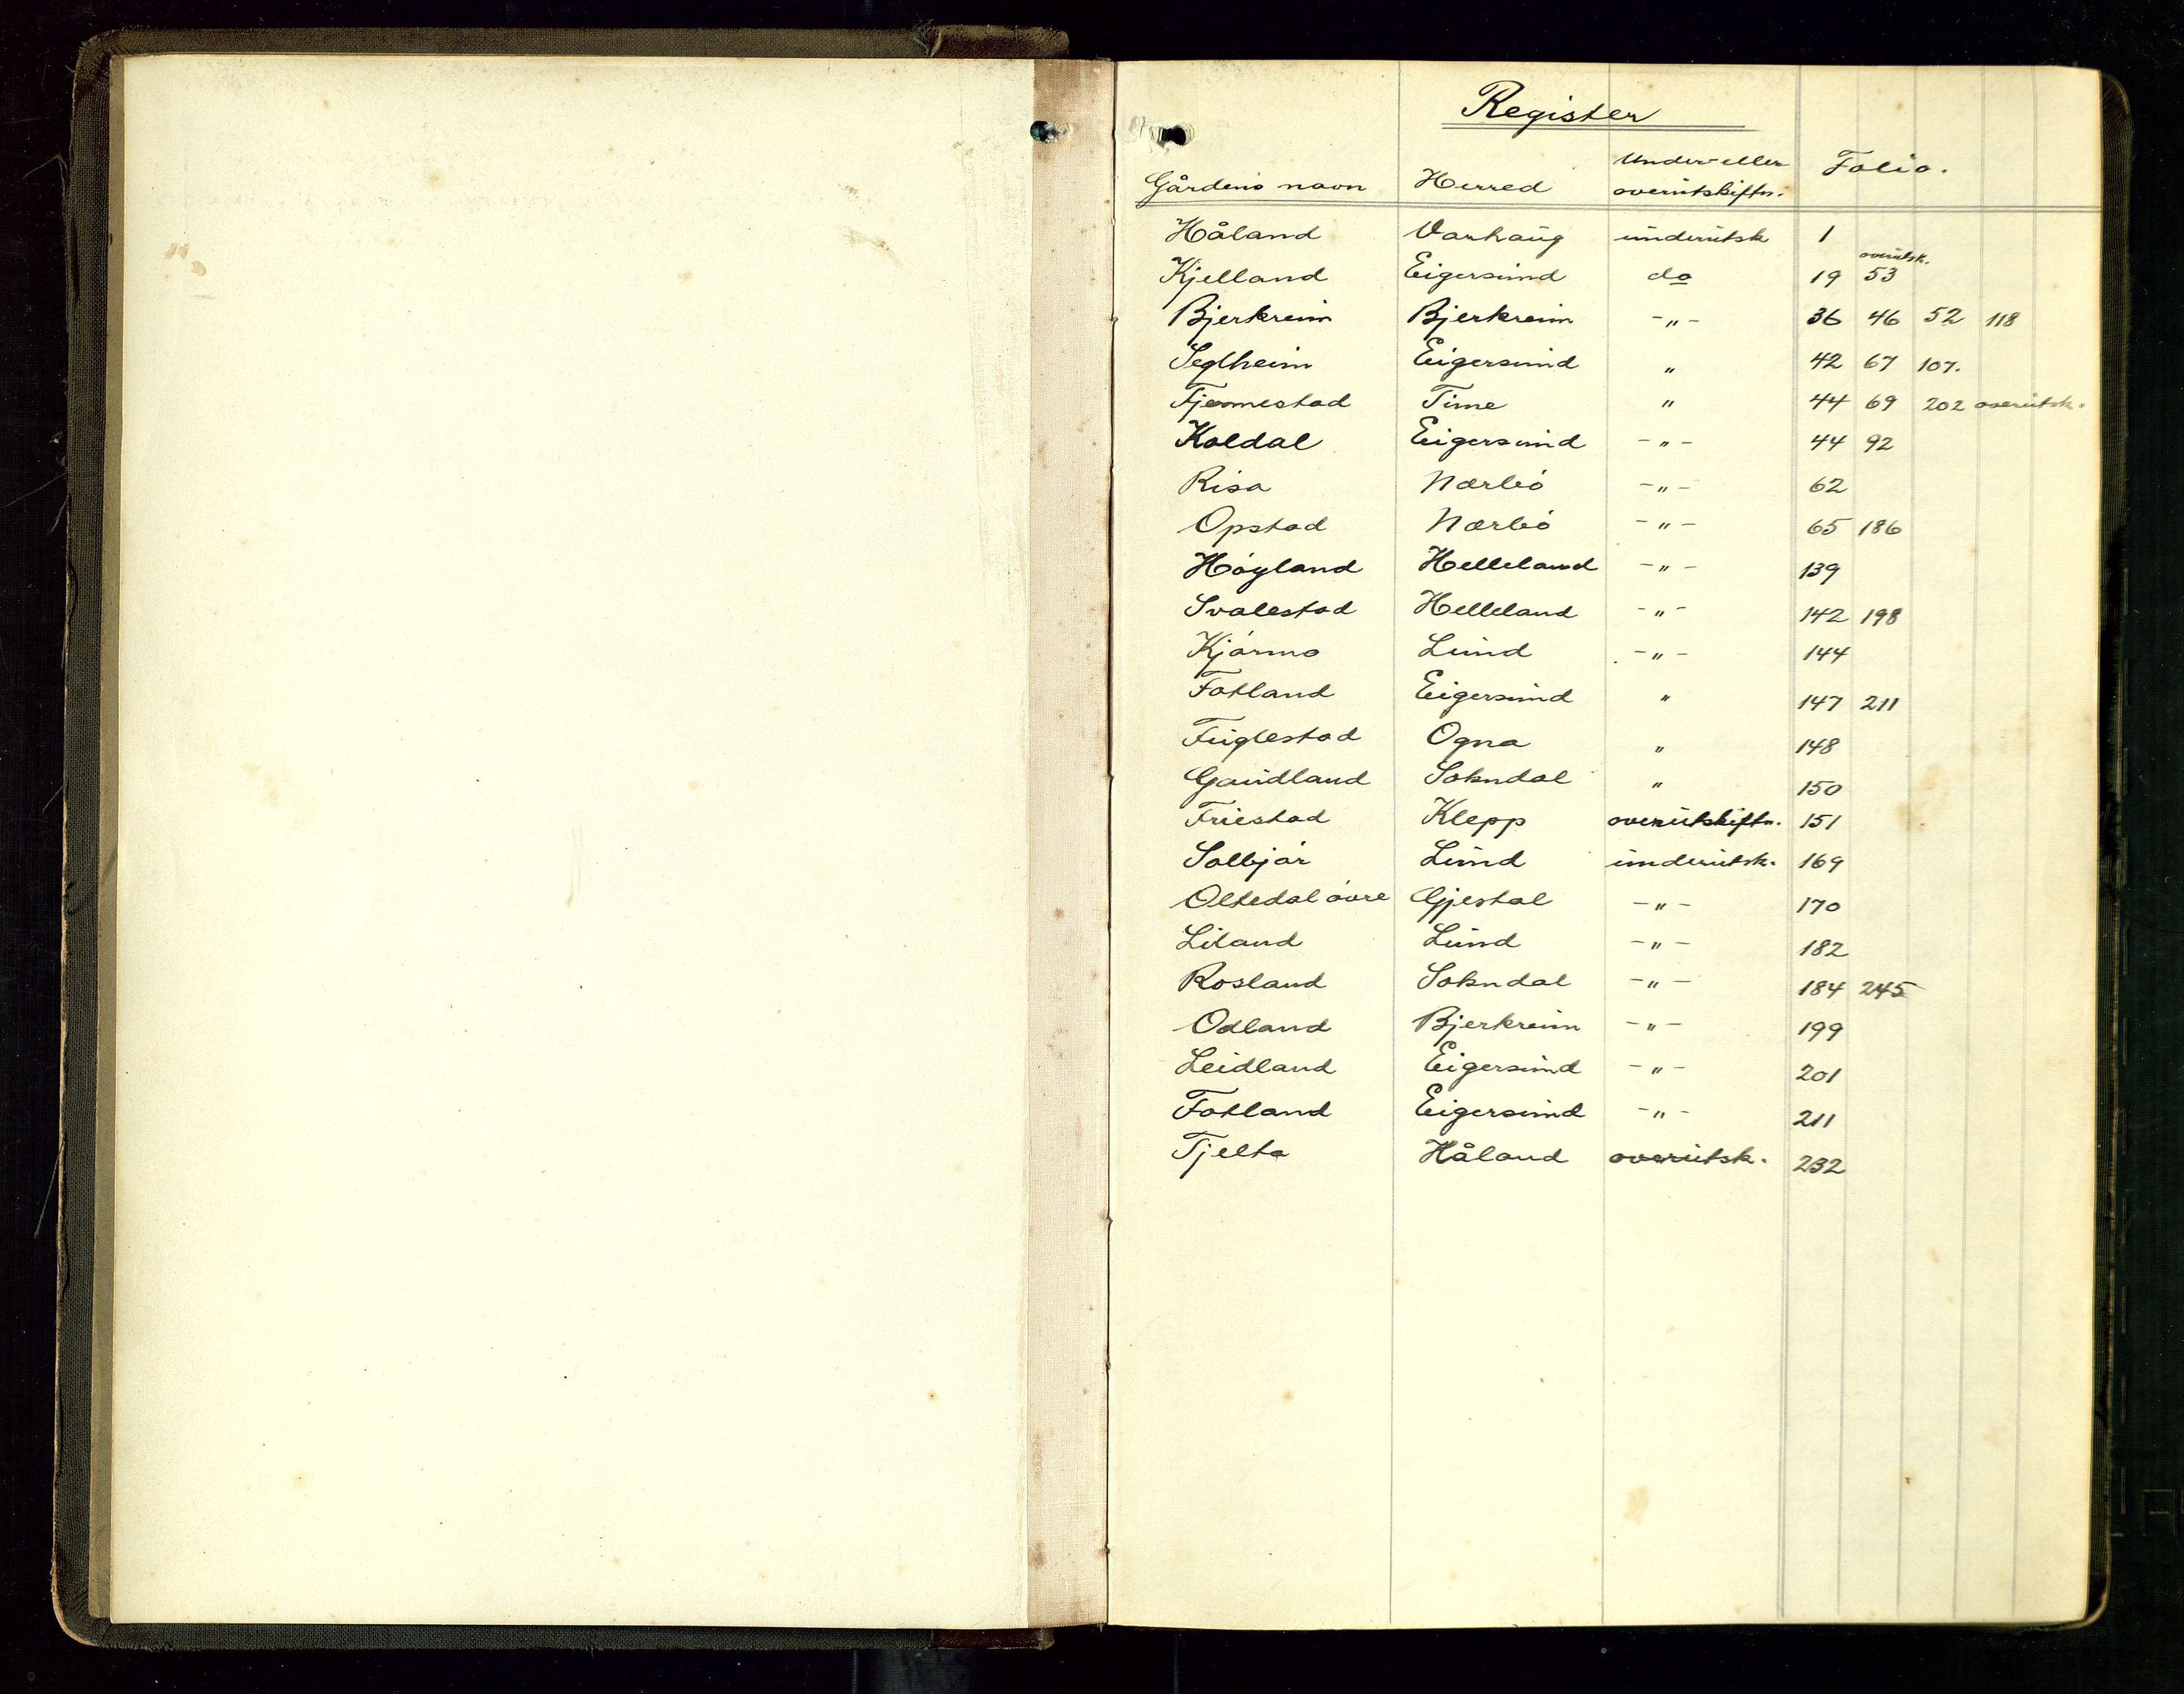 Register
Gårdens navn Herred Under- eller overutskiftn. Folio.
Håland Varhaug underutsk 1
Kjelland Eigersund do 19 53 overutsk.
Bjerkreim Bjerkreim -"- 36 46 52 118
Seglheim Eigersund " 42 67 107.
Fjermestad Time " 44 69 202 overutsk.
Koldal Eigersund -"- 44 92
Risa Nærbö -"- 62
Opstad Nærbö -"- 65 186
Höyland Helleland -"- 139
Svalestad Helleland -"- 142 198
Kjörmo Lund -"- 144
Fotland Eigersund " 147 211
Fuglestad Ogna " 148
Gaudland Sokndal " 150
Friestad Klepp overutskiftn. 151
Solbjör Lund underutsk. 169
Oltedal övre Gjestal -"- 170
Liland Lund -"- 182
Rosland Sokndal -"- 184 245
Odland Bjerkreim -"- 199
Leidland Eigersund -"- 201
Fotland Eigersund -"- 211
Tjelta Håland overutsk. 232